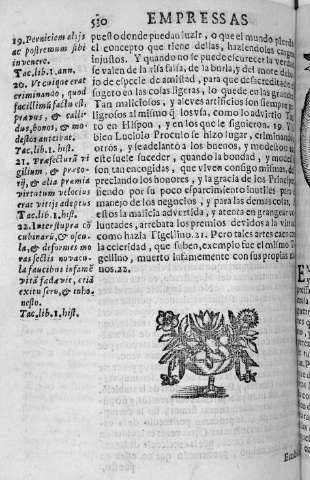 530 EMPRESSAS
19. Perniciem alijs
ac postremum sibi
invenere.
Tac. lib. 1. ann.
20. Ut cuique erat
criminando, quod
facillimũ factu est,
pravus, & calli-
dus, bonos, & mo-
destos anteibat.
Tac. lib. 1. hist.
21. Præfecturã vi
gilium, & præto-
rij, & alia præmia
virtutum velocius
erat vitijs adeptus
Tac. lib. 1. hist.
22. Inter stupra cõ
cubinarũ, & oscu-
la, & deformes mo
ras sectis novacu-
la faucibus infamẽ
vitã fœdavit, etiã
exitu sero, & inho-
nesto.
Tac. lib. 1. hist.
puesto donde puedan luzir, o que el mundo pierda
el concepto que tiene dellas, haziendolas cargos
injustos. Y quando no se puede escurecer la verdad
se valen de la risa falsa, de la burla, y del mote debaxo
de especie de amistad, para que desacreditado
sugeto en las cosas ligeras, lo quede en las grandes.
Tan maliciosos, y aleves artificios son siempre pe-
ligrosos al mismo q los vsa, como lo advirtio Taci-
to en Hispon, y en los que le siguieron. 19. Y
bien Luciolo Proculo se hizo lugar, criminando
otros, y se adelantò a los buenos, y modestos
este suele suceder, quando la bondad, y modestia
son tan encogidas, que viven consigo mismas, des
preciando los honores, y la gracia de los Principes
siendo por su poco esparcimiento inutiles pro
manejo de los negocios, y para las demas cosas.
estos la malicia advertida, y atenta en grangear vo
luntades, arrebata los premios devidos a la virtud
como hazia Tigellino. 21. Pero tales artes caen con
la celeridad, que suben, exemplo fue el mismo Ti-
gellino, muerto infamemente con sus propias ma
nos. 22.